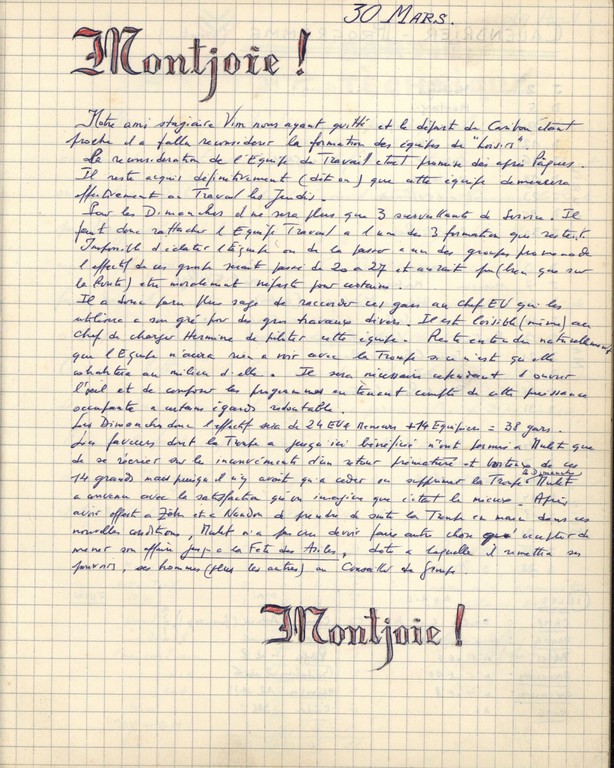 30 MARS.
Montjoie !
Notre ami stagiaire Vim nous ayant quitté et le départ du Caribou étant
proche il a fallu reconsiderer la formation des équipes de "loisirs".
La reconsideration de l'Equipe du Travail etait promise dès après Paques.
Il reste acquis définitivement (dit on) que cette équipe demeurera
effectivement au Travail les Jeudis.
Pour les Dimanches il ne sera plus que 3 surveillants de Service. Il
faut donc rattacher l'Equipe Travail a l'une des 3 formation qui restent.
Impossible d'éclater l'Equipe ou de la passer a un des groupes promenade
l'effectif de ces groupes serait passé de 20 a 27 et aurait pu (bien que sur
la Route) etre moralement néfaste pour certains.
Il a donc paru plus sage de raccorder ces gars au Chef EV qui les
utilisera a son gré pour des gros travaux divers. Il est loisible (même) au
Chef de charger Hermine de piloter cette équipe. Reste entendu naturellement
que l'Equipe n'aura rien a voir avec la Troupe si ce n'est qu'elle
cohabitera au milieu d'elle. Il sera nécessaire cependant d'ouvrir
l'œil et de composer les programmes en tenant compte de cette puissance
occupante a certains égards redoutable.
Les Dimanches donc l'effectif sera de 24 EV + Meneurs + 14 Equipiers = 38 gars.
Les faveurs dont la Troupe a jusqu'ici bénéficié n'ont permis a Mulet que
de se récrier sur les inconvénients d'un retour prématuré et de ces
14 grands mais puisqu'il n'y avait qu'a ceder ou supprimer la Troupe le Dimanche Mulet
a convenu avec la satisfaction qu'on imagine que c'etait le mieux. Après
avoir offert a Zèbre et a Nandou de prendre de suite la Troupe en main dans ces
nouvelles conditions, Mulet n'a pas cru devoir faire autre chose que accepter de
mener son affaire jusqu'a la Fete des Ailes, date a laquelle il remettra ses
pouvoirs, ses hommes (plus les autres) au Conseiller de Groupe
Montjoie !